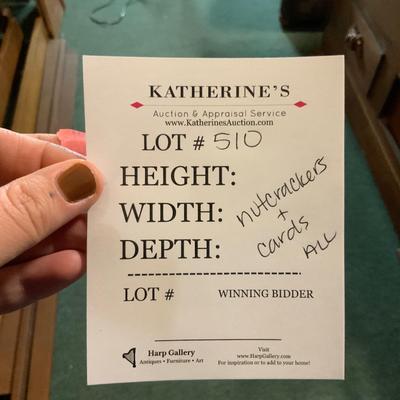 KATHERINE'S
Auction & Appraisal Service
www.KatherinesAuction.com
LOT # 510
HEIGHT:
WIDTH:
DEPTH:
nutcrackers
+
cards
ALL
LOT #
WINNING BIDDER
Harp Gallery
Antiques • Furniture • Art
Visit
www.HarpGallery.com
For inspiration or to add to your home!